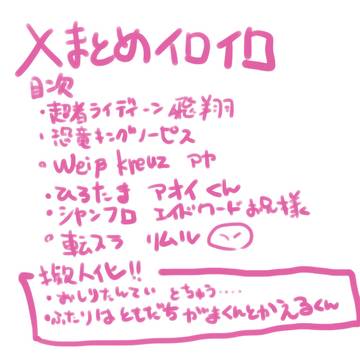 Xまとめイロイロ
目次
・超者ライディーン 飛翔
・恐竜キング ノーピス
・Weiß kreuz アヤ
・ひろたま アオイくん
・シャンフロ エイドワード お兄様
・転スラ リムル
擬人化!!
・おしりたんてい とちゅう‥‥
・ふたりはともだち がまくんとかえるくん